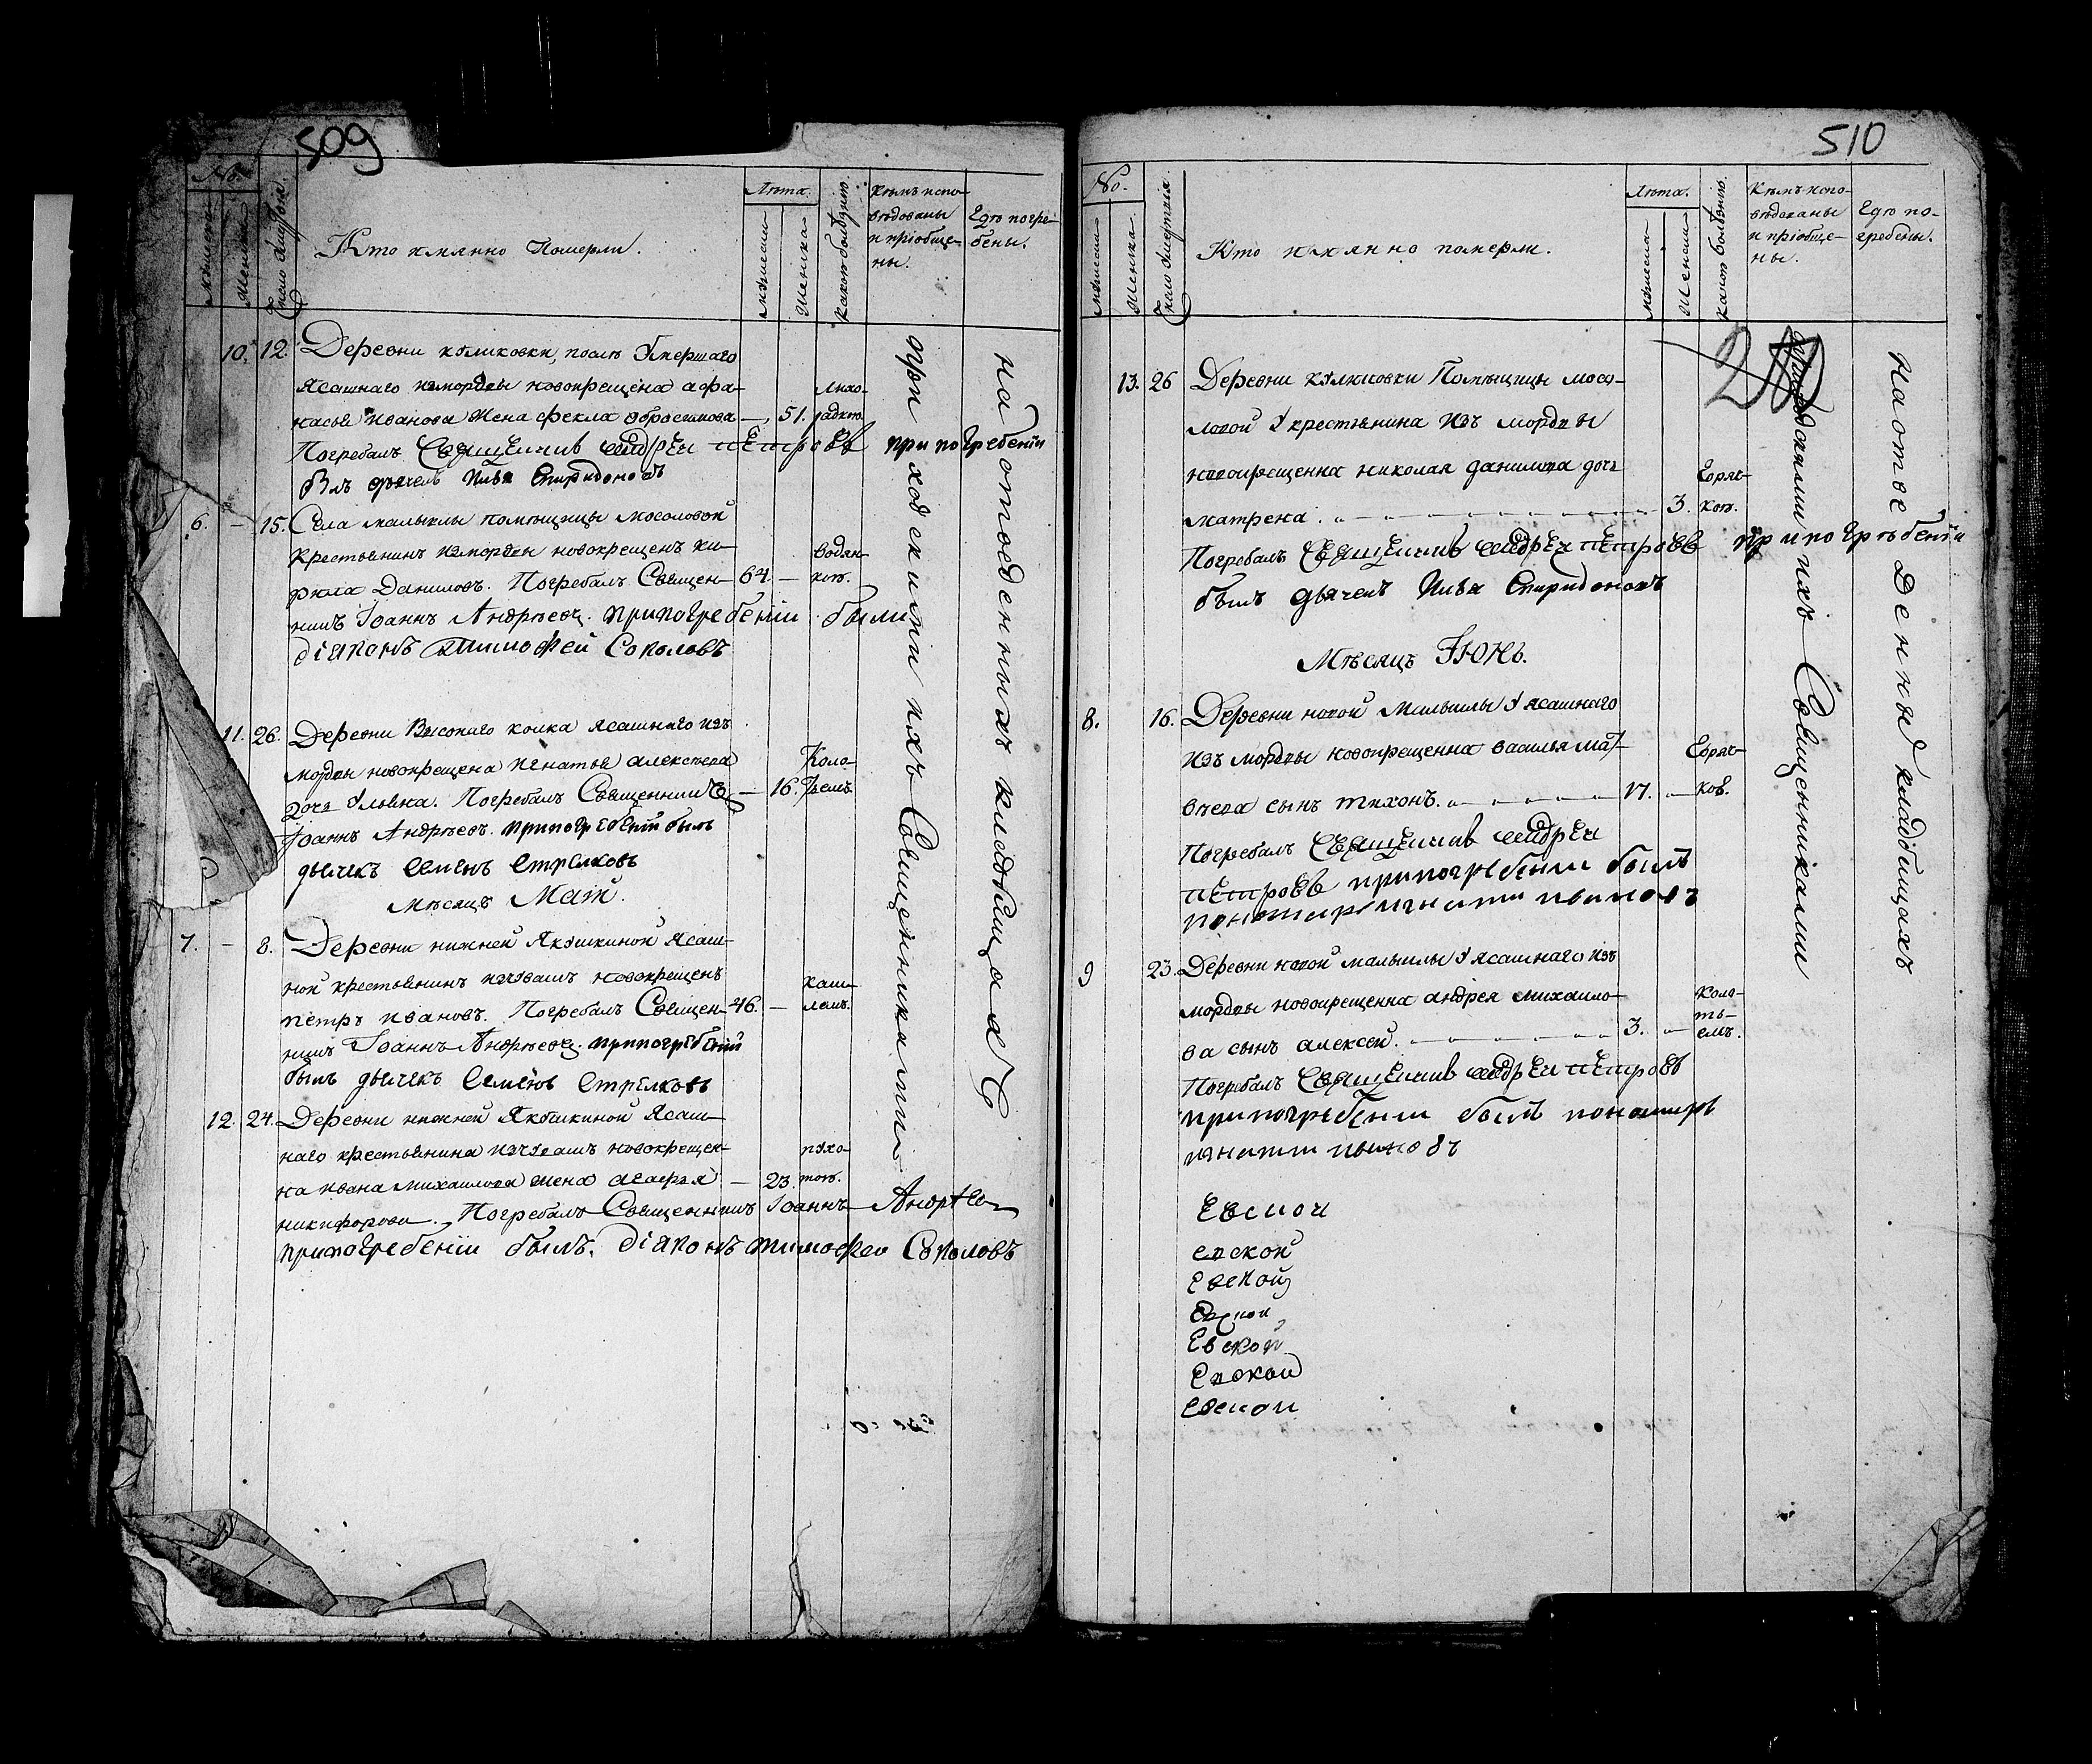 509
No.
Мужеска
Женска
Число смерти.
Кто имянно Померли.
Лѣта.
мужеска
Женска
Какою болѣзнію.
Кѣмъ испо-
вѣдованы
и пріобще-
ны.
Гдѣ погре-
бены.
10. 12. Деревни куликовки, послѣ Умершаго
Ясашнаго измордвы новокрещена афа-
насья Иванова Жена фекла — 51. лихо-
радкою
Погребалъ Священникъ Андрей Петровъ при погребении
былъ дьячекъ Илья Спиридоновъ
6. – 15. Села малыклы помѣщицы мосоловой
Крестьянинъ измордвы новокрещенъ ки-
рила Даниловъ. Погребалъ Священ- 64. — водян-
кою.
никъ Іоаннъ Андрѣевъ. припогребеніи были
діаконъ тимофей Соколовъ
11. 26. Деревни Высокаго колка ясашнаго изъ
мордвы новокрещена игнатья алексѣева
дочь Ульяна. Погребалъ Священникъ — 16. Коло-
тьемъ.
Іоаннъ Андрѣевъ. припогребеніи былъ
дьячекъ Семенъ Стрелковъ
Мѣсяцъ Маій.
7. – 8. Деревни нижней Якушкиной Ясаш-
ной крестьянинъ изчувашъ новокрещенъ
петръ ивановъ. Погребалъ Священ- 46. — каш-
лемъ.
никъ Іоаннъ Андрѣевъ. припогребеніи
былъ дьячекъ Семенъ Стрелковъ
12. 24. Деревни нижней Якушкиной Ясаш-
наго крестьянина изчувашъ новокрещен-
на ивана михаилова жена агафья — 23. пухо-
тою.
никифорова. Погребалъ Священникъ Іоаннъ Андрѣевъ
припогребеніи былъ. діаконъ тимофеи Соколовъ
приходскими ихъ Священниками
на отведенныхъ кладбищахъ
510
No.
мужеска
Женска
Число смертія.
Кто имянно померли.
Лѣта.
мужеска
Женска
Какою болѣзнію.
Кѣмъ испо-
вѣдованы
и пріобще-
ны.
Гдѣ по-
гребены.
13. 26 Деревни куликовки Помѣщицы мосо-
ловой У крестьянина изъ мордвы
новокрещенна николая данилова дочь
матрена. 3. Горяч-
кою.
Погребалъ Священникъ Андрей Петровъ при погрѣбеніи
былъ дьячекъ Илья Спиридоновъ
Мѣсяцъ Іюнь.
8. 16. Деревни новой Малыклы У ясашнаго
изъ мордвы новокрещенна василья мат-
вѣева сынъ тихонъ. 17. — Горяч-
кой.
Погребалъ Священникъ Андрей
Петровъ припогребении былъ
понамарь игнати ивановъ
9 23. Деревни новой малыклы У ясашнаго изъ
мордвы новокрещенна андрея михаило-
ва сынъ алексей. 3. — коло-
ть-
емъ.
Погребалъ Священникъ Андрей Петровъ
припогребении былъ пономарь
игнати ивановъ
приходскими ихъ Священниками
на отведенныхъ кладбищахъ
Евской
евской
Евской
Евской
Евской
Евской
евской